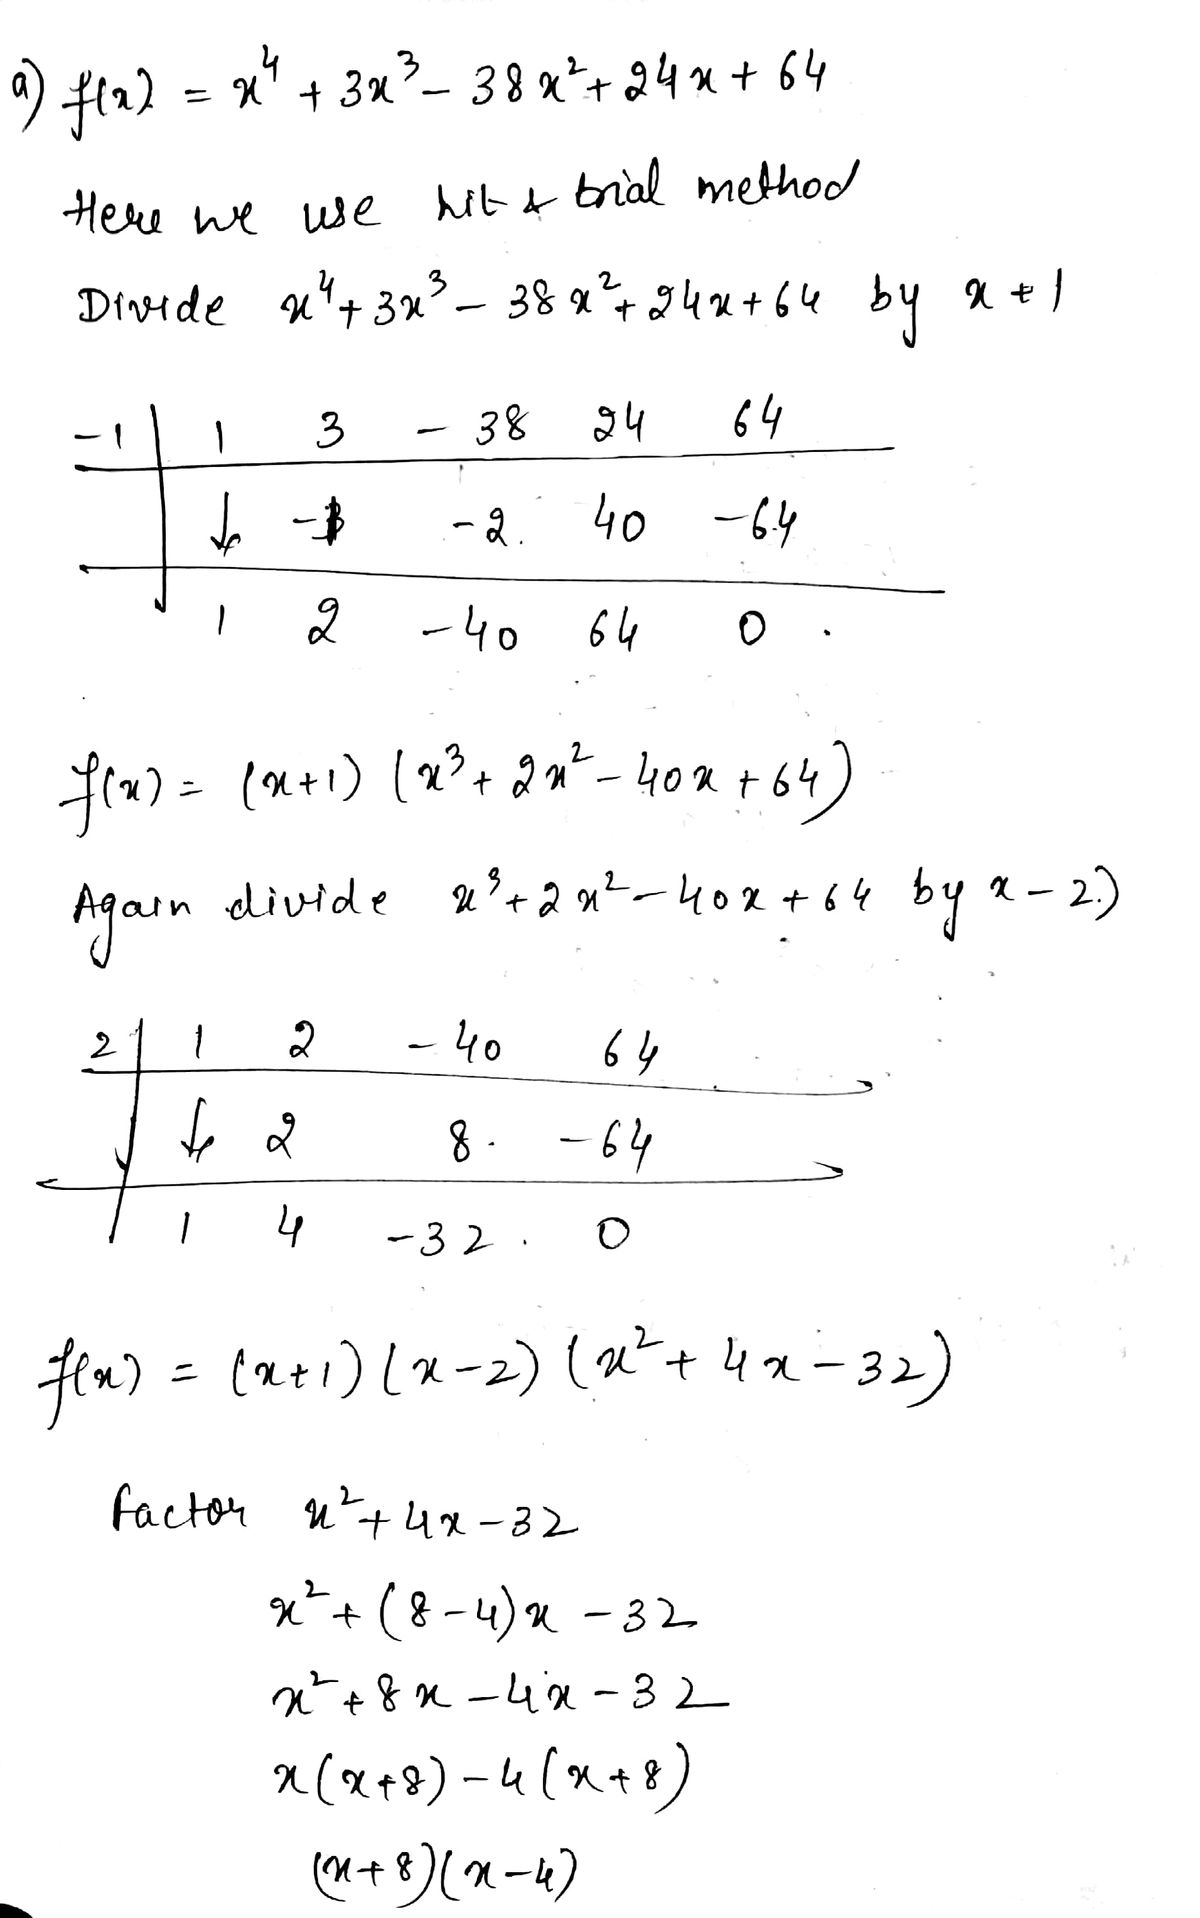 a) f(x) = x⁴ + 3x³ - 38x² + 24x + 64
Here we use hit & trial method
Divide x⁴ + 3x³ - 38x² + 24x + 64 by x + 1
-1 | 1 3 - 38 24 64
↓ -1 -2. 40 -64
1 2 -40 64 0 .
f(x) = (x+1) (x³ + 2x² - 40x + 64)
Again divide x³ + 2x² - 40x + 64 by x - 2)
2 | 1 2 - 40 64
↓ 2 8. -64
1 4 -32. 0
f(x) = (x+1) (x-2) (x² + 4x - 32)
factor x² + 4x - 32
x² + (8-4)x - 32
x² + 8x - 4x - 32
x(x+8) - 4(x+8)
(x+8)(x-4)